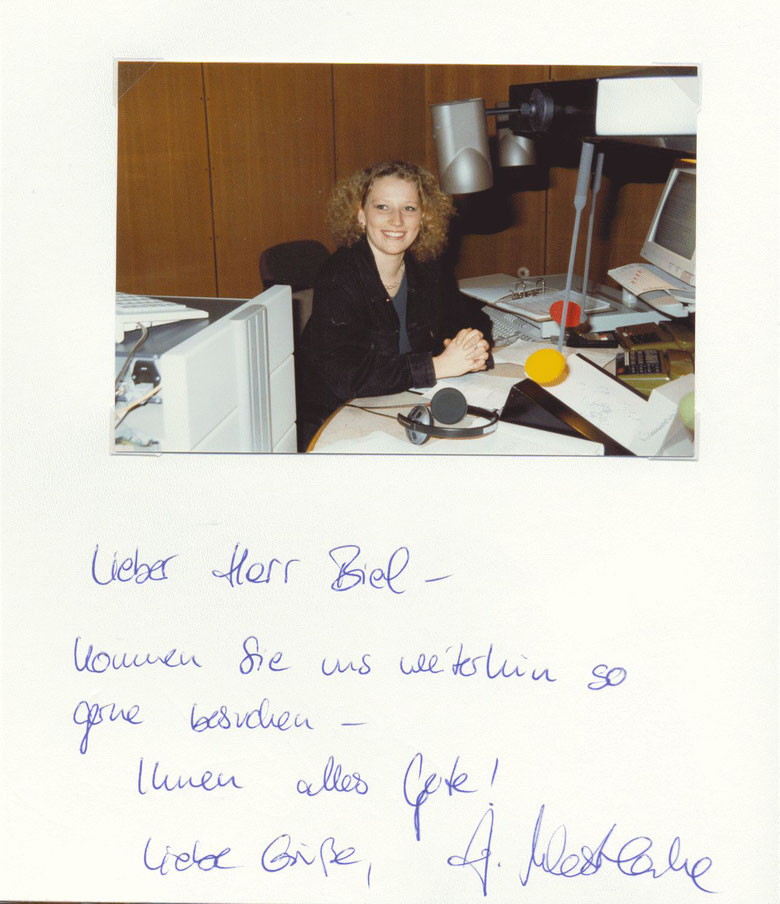 Lieber Herr Biel –
kommen Sie uns weiterhin so
gerne besuchen –
Ihnen alles Gute!
Liebe Grüße,